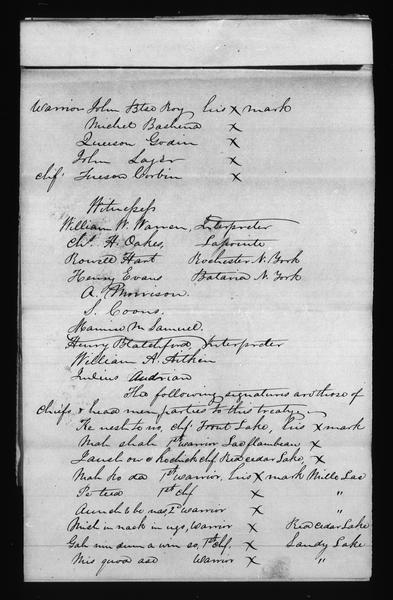 Warrior John Btse Roy his x mark
Michel Bashena x
Queeson Godin x
John Lager x
Chf. Tueson Corbin x
Witnesses
William W. Warren, Interpreter
Chs. H. Oakes, Lapointe
Roswell Hart Rochester N. York
Henry Evans Batavia N. York
A. Morrison.
S. Coons.
M Samuel.
Henry Blatchford Interpreter
William A. Aitkin
Julius Audrian
The following signatures are those of
Chiefs & head men parties to this treaty
Ke nesh te no, chf. Trout Lake, his x mark
Mah shah 1st warrior Lac flambeau x
chf Red cedar Lake, x
Mah ko da 1st Warrior, his x mark Mille Lac
Pe tud 1st chf x "
Aunch e be nas, 2d Warrior x "
Mish in nack in ugo, Warrior x Red cedar Lake
Gah nin dum a win so, 1st chf. x Sandy Lake
Mis quod ase Warrior x "